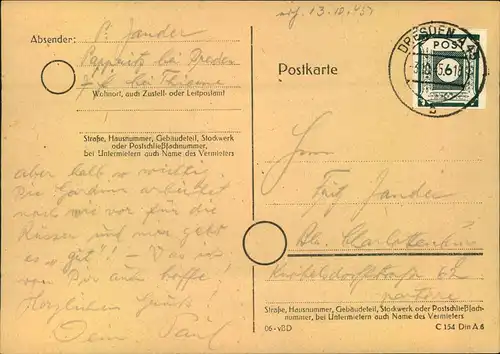 abg. 13.10.45
Absender: P. Jander
Pappritz bei Dresden
bei
Wohnort, auch Zustell- oder Leitpostamt
Straße, Hausnummer, Gebäudeteil, Stockwerk
oder Postschließfachnummer,
bei Untermietern auch Name des Vermieters
aber halb so wichtig.
arbeitet
nach wie vor für die
Russen und man geht
es "gut"! – Was ich
von Dir auch hoffe!
Herzlichen Gruß
Dein Paul
Postkarte
DRESDEN A 45
POST
6
b
Herrn
Fritz Jander
Bln. Charlottenburg
62
parterre
Straße, Hausnummer, Gebäudeteil, Stockwerk oder Postschließfach-
nummer, bei Untermietern auch Name des Vermieters
06-vBD
C 154 Din A 6